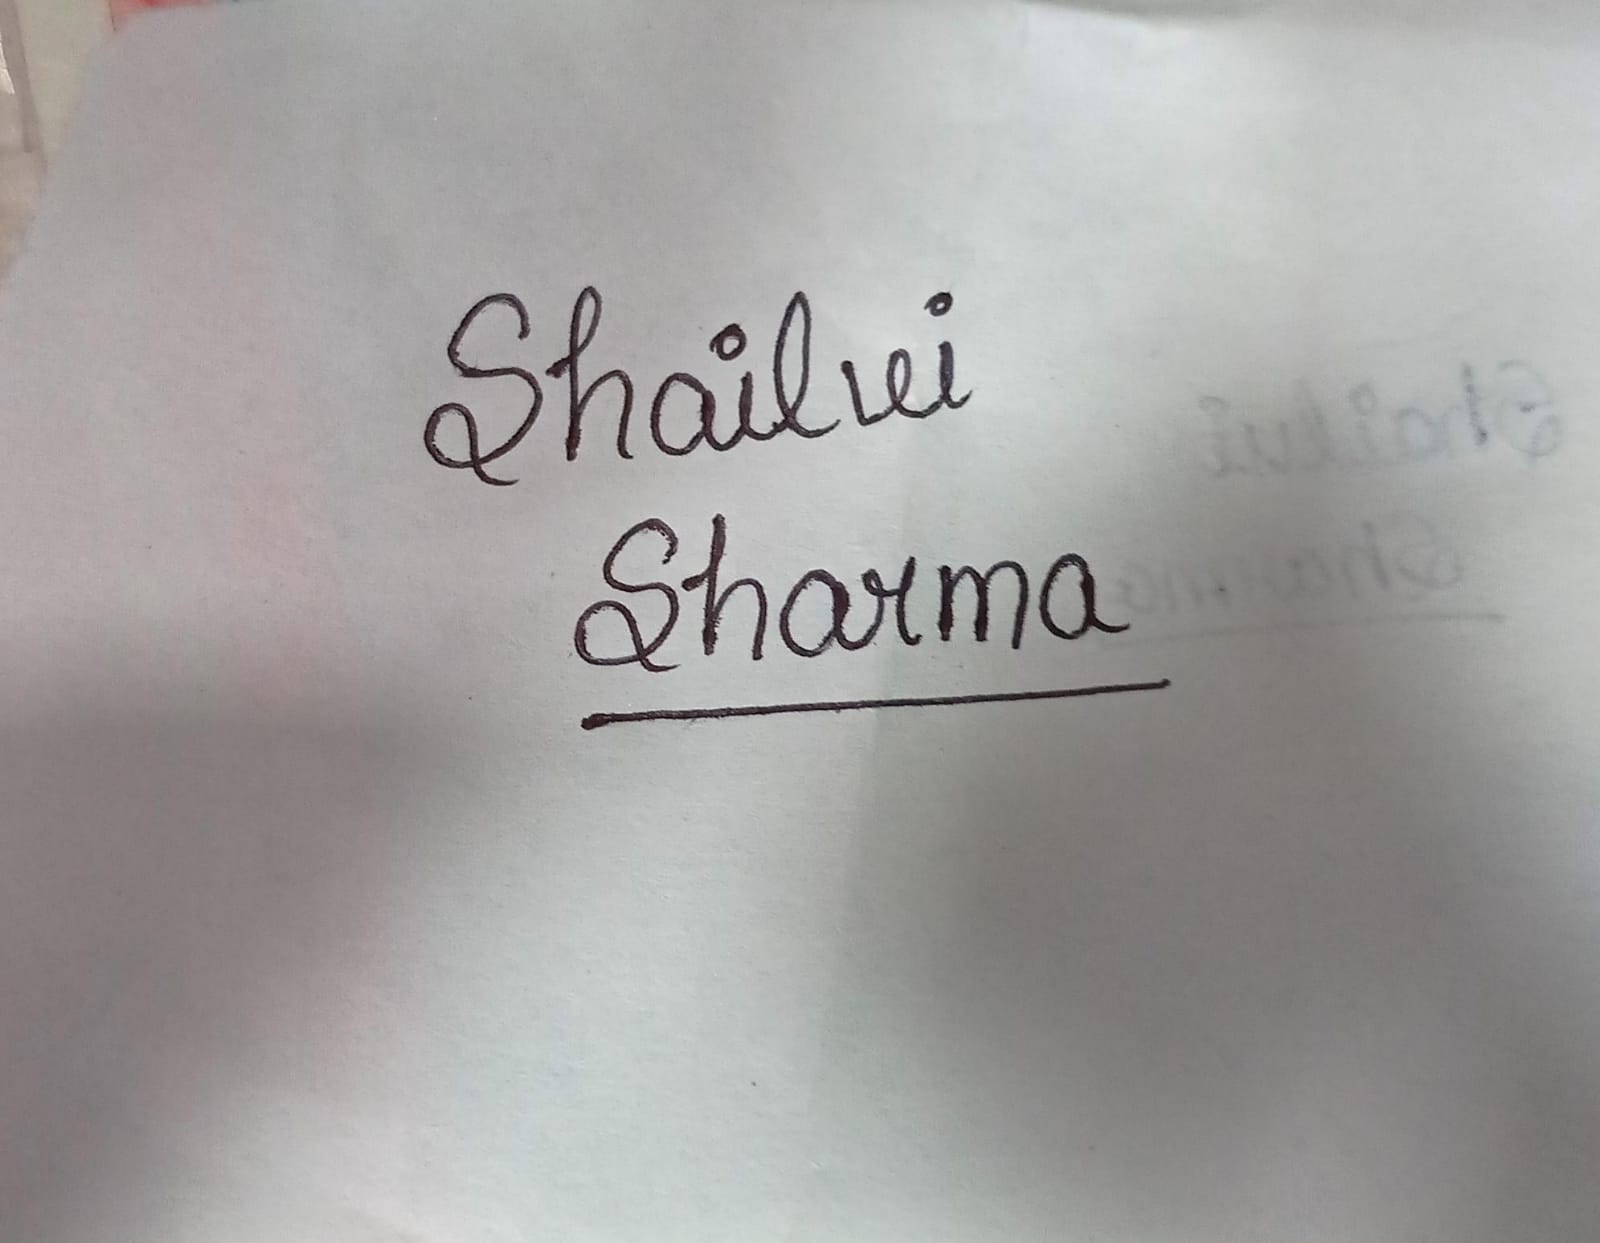 Shailvi
Sharma